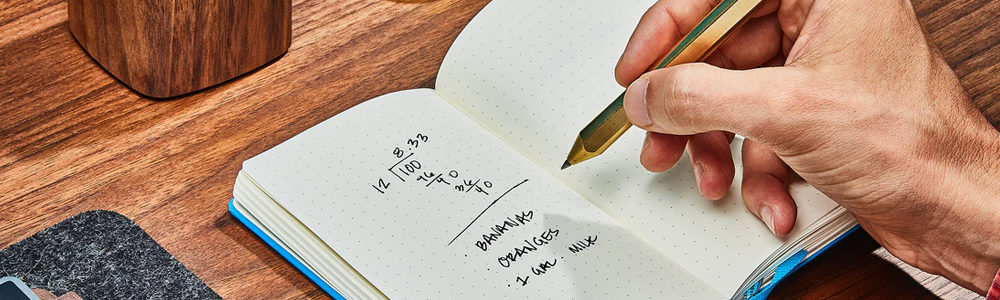 8.33
12 100
96
40
36
40
· BANANAS
· ORANGES
· 1 GAL. MILK